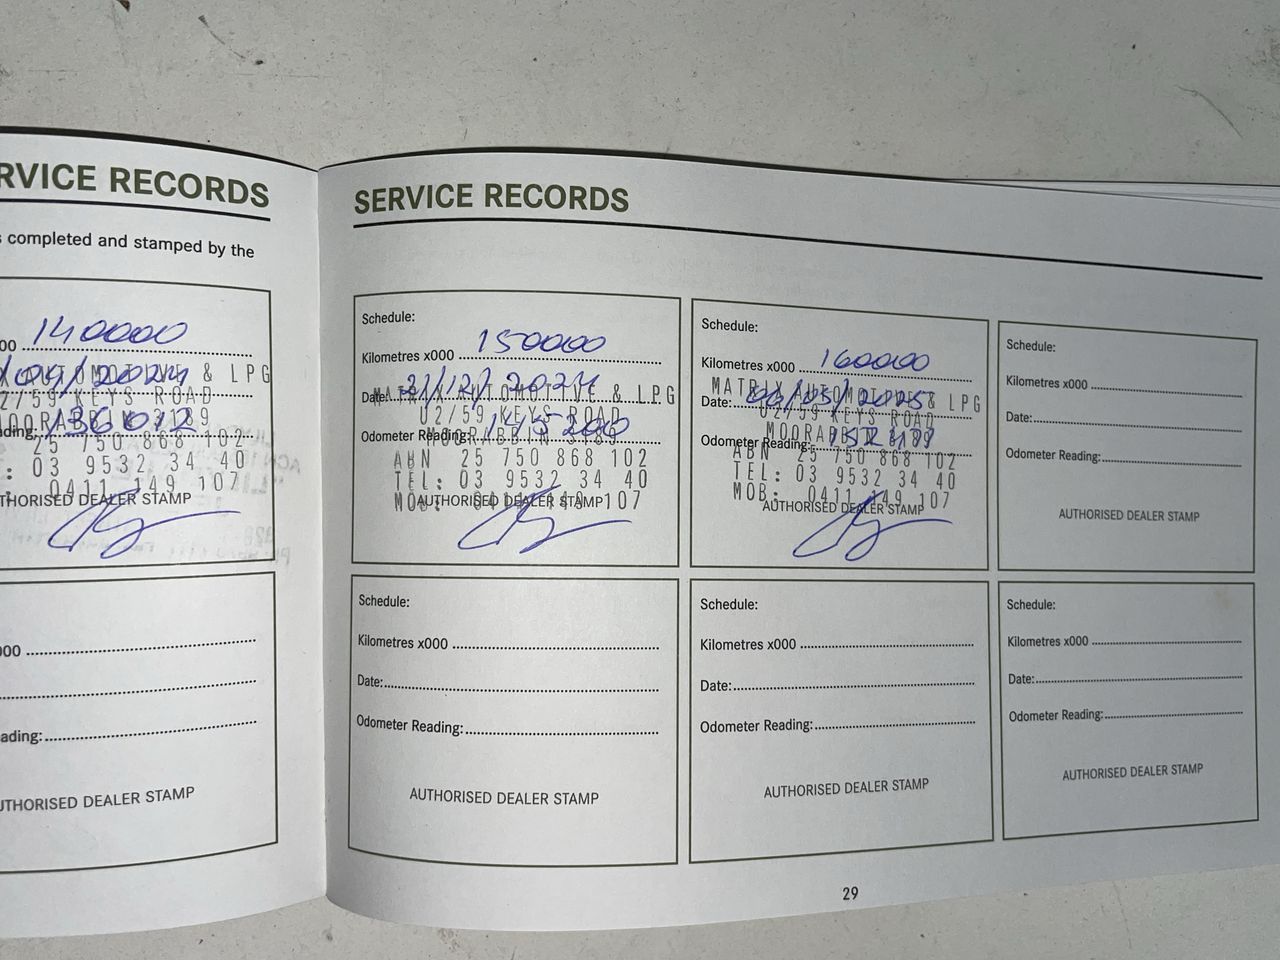 RVICE RECORDS
s completed and stamped by the
00 140000
/04/2024 & LPG
2/59 KEYS ROAD
ading: 136072
25 750 868 102
: 03 9532 34 40
: 0411 149 107
THORISED DEALER STAMP
00
ading:
UTHORISED DEALER STAMP
SERVICE RECORDS
Schedule:
Kilometres x000 150000
MATRIX AUTOMOTIVE & LPG
Date: 21/12/2024
U2/59 KEYS ROAD
Odometer Reading: 145200
MOORABBIN 3189
ABN 25 750 868 102
TEL: 03 9532 34 40
MOB: 0411 149 107
AUTHORISED DEALER STAMP
Schedule:
Kilometres x000 160000
MATRIX AUTOMOTIVE & LPG
Date: /05/2025
U2/59 KEYS ROAD
MOORABBIN 3189
Odometer Reading:
ABN 25 750 868 102
TEL: 03 9532 34 40
MOB: 0411 149 107
AUTHORISED DEALER STAMP
Schedule:
Kilometres x000
Date:
Odometer Reading:
AUTHORISED DEALER STAMP
Schedule:
Kilometres x000
Date:
Odometer Reading:
AUTHORISED DEALER STAMP
Schedule:
Kilometres x000
Date:
Odometer Reading:
AUTHORISED DEALER STAMP
Schedule:
Kilometres x000
Date:
Odometer Reading:
AUTHORISED DEALER STAMP
29